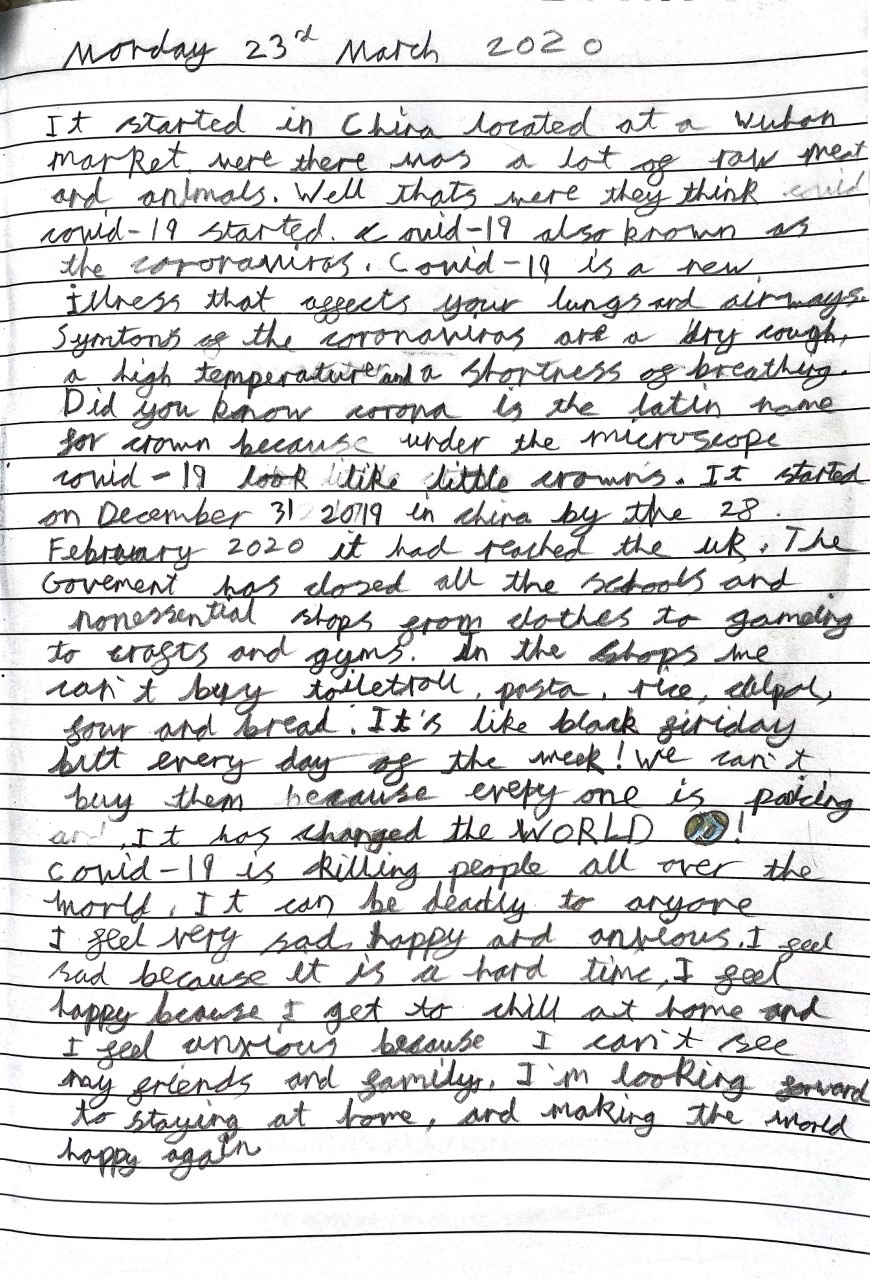 Monday 23rd March 2020
It started in China located at a Wuhan
market were there was a lot of raw meat
and animals. Well thats were they think covid
covid-19 started. covid-19 also known as
the coronaviros. Covid-19 is a new
illness that affects your lungs and airways.
Symtons of the coronaviros are a dry cough,
a high temperature and a shortness of breathing.
Did you know corona is the latin name
for crown because under the microscope
covid-19 look like little crowns. It started
on December 31 2019 in china by the 28
February 2020 it had reached the uk. The
Goverment has closed all the schools and
nonessential shops from clothes to gameing
to crafts and gyms. In the shops we
can't buy toiletroll, pasta, rice,
four and bread. It's like black firiday
butt every day of the week! We can't
buy them because every one is
It has changed the WORLD !
Covid-19 is killing people all over the
world. It can be deadly to anyone
I feel very sad, happy and anxious. I feel
sad because it is a hard time, I feel
happy becuase I get to chill at home and
I feel anxious because I can't see
my friends and family. I'm looking forward
to staying at home, and making the world
happy again